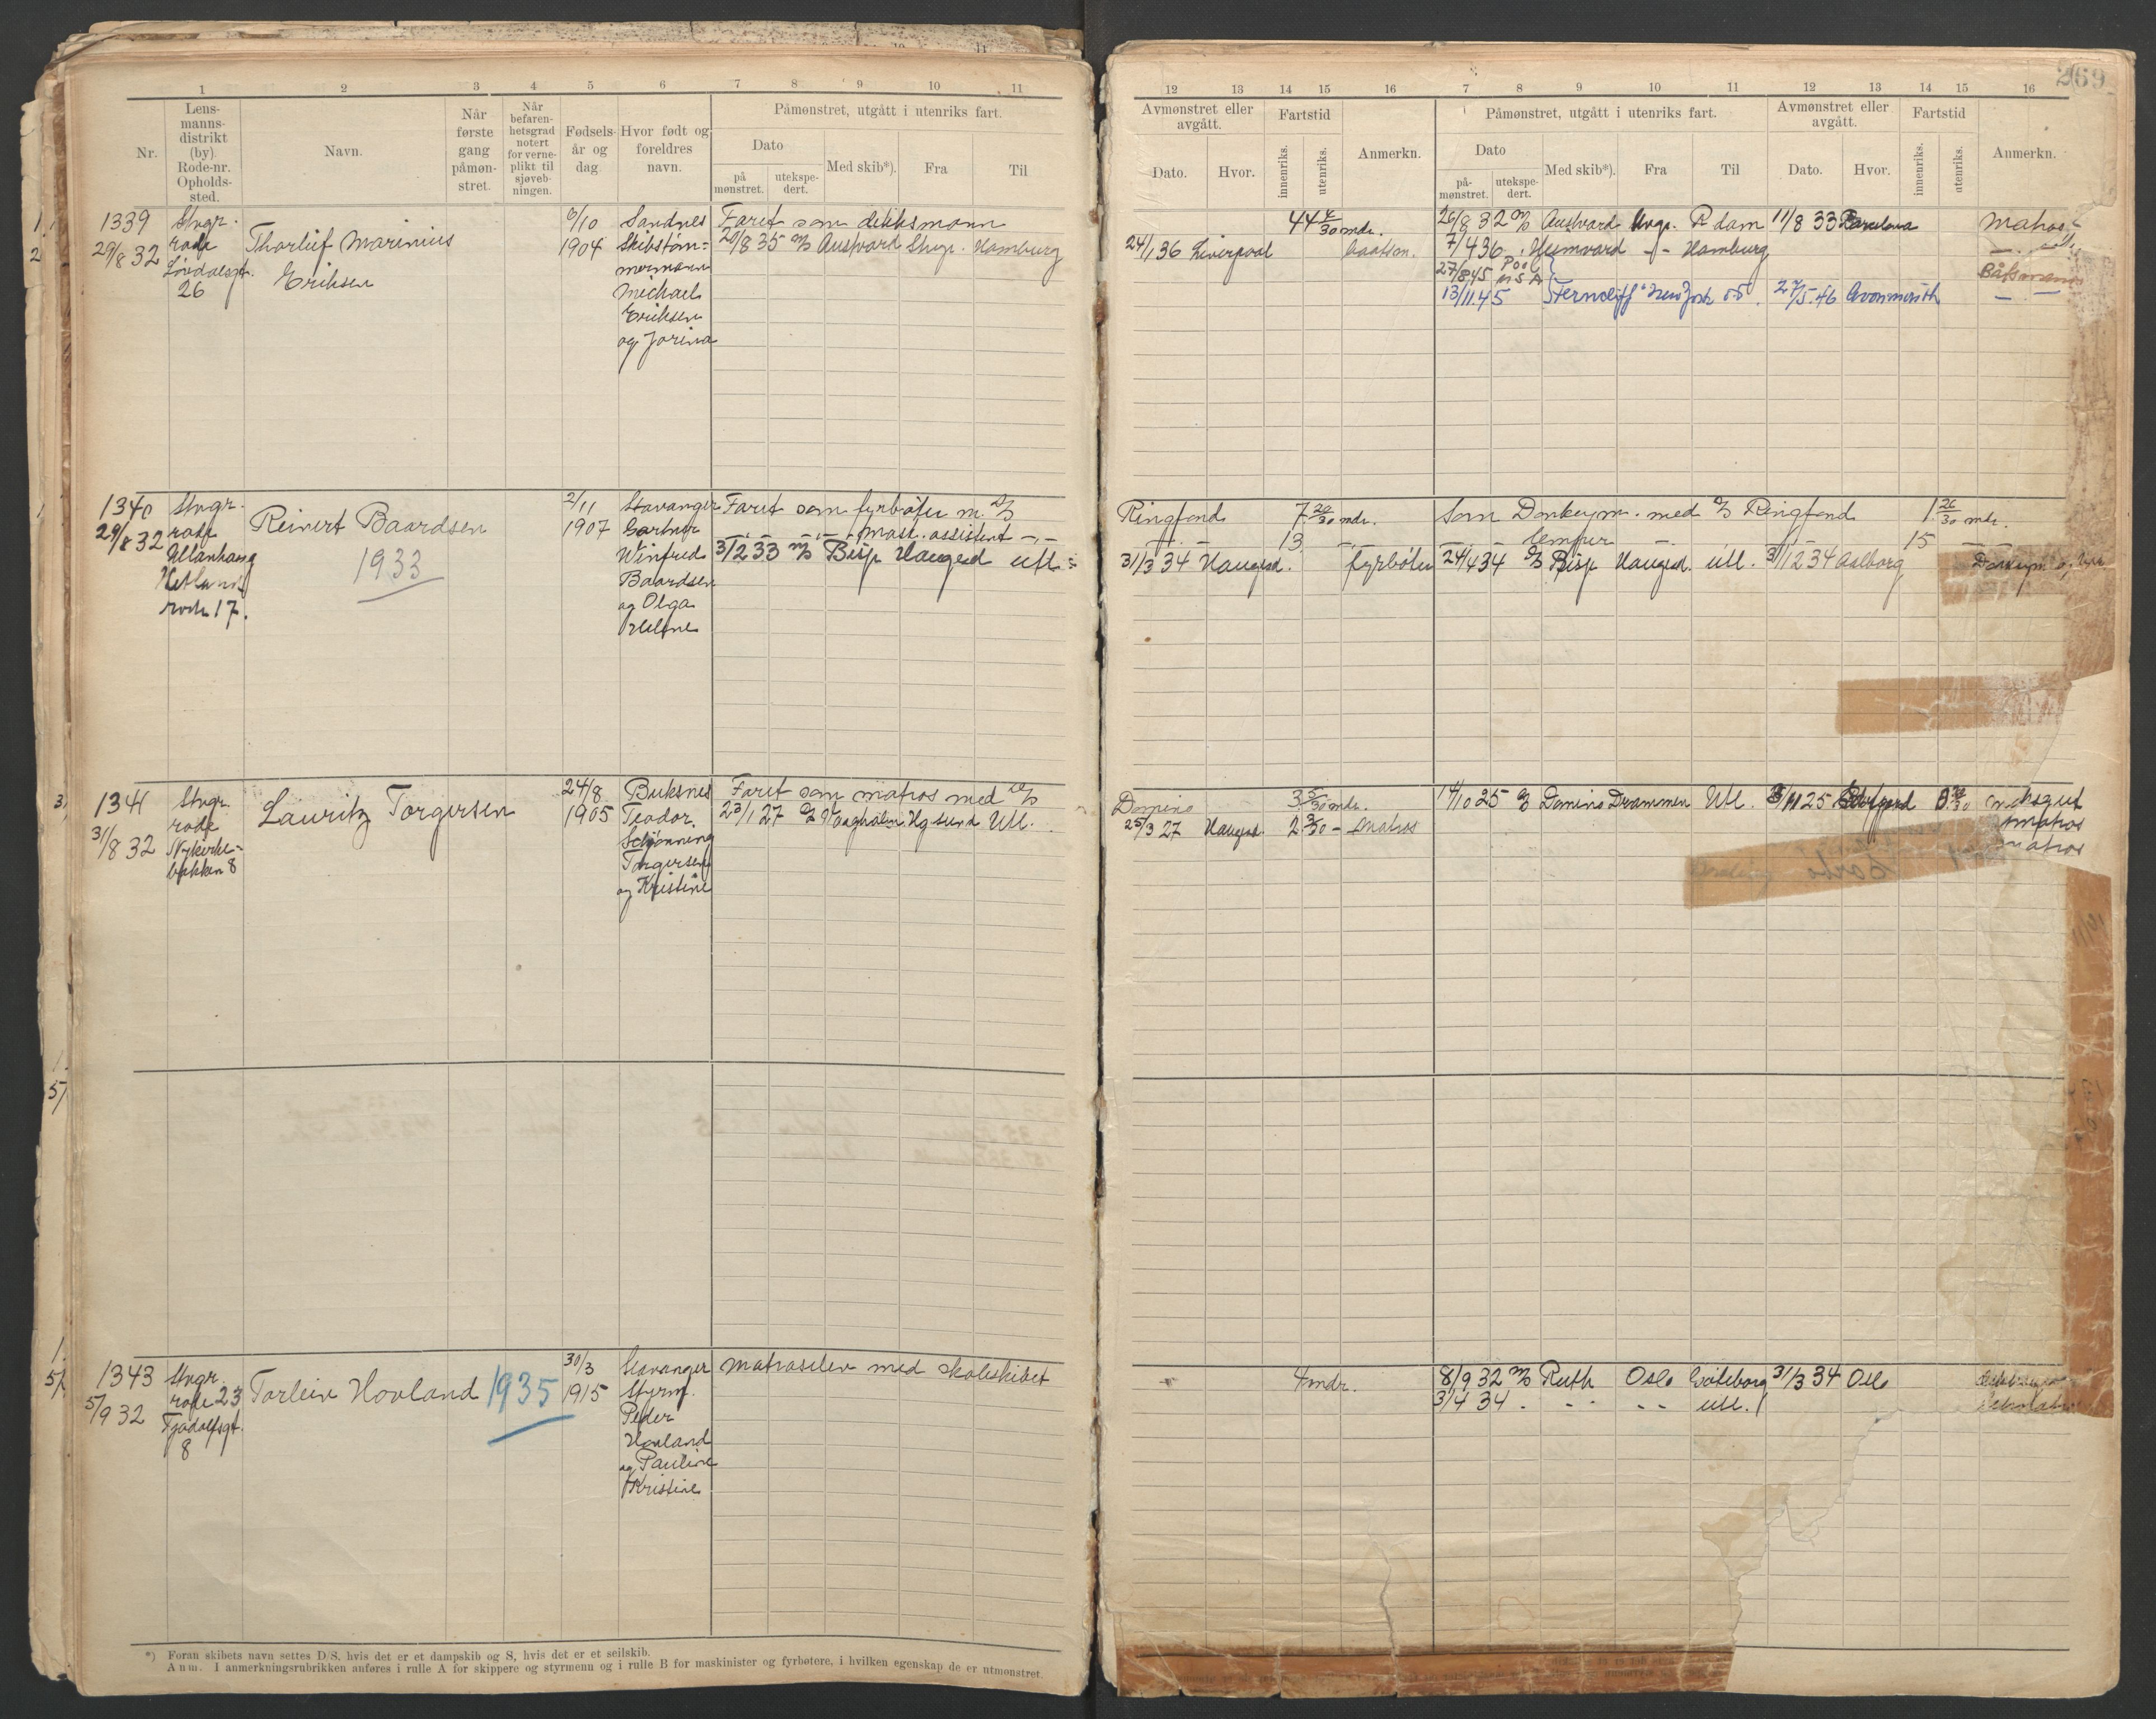 1 2 3 4 5 6 7 8 9 10 11
Nr.
Lens-
manns-
distrikt
(by).
Rode-nr.
Opholds-
sted.
Navn.
Når
første
gang
påmøn-
stret.
Når
befaren-
hetsgrad
notert
for verne-
plikt til
sjøveb-
ningen.
Fødsels-
år og
dag.
Hvor født og
foreldres
navn.
Påmønstret, utgått i utenriks fart.
Dato
på
mønstret.
utekspe-
dert.
Med skib*).
Fra
Til
1339
29/8 32
Stvgr.
rode
26
Thorleif Marinius
Eriksen
6/10
1904
Sandnes
Skibstøm=
mermann
Michael
Eriksen
og Jorina
Faret som dekksmann
29/8 35 M/S Austvard Stvgr. Hamburg
1340
29/8 32
Stvgr.
rode
Ullanhaug
Hetland
rode 17.
Reinert Baardsen
1933
2/11
1907
Stavanger
Gartner
Winfred
Baardsen
og Olga
Helene
Faret som fyrbøter m. D/S
— — — mask. assistent — —
3/2 33 M/S Bisp Haugesd utl.
1341
31/8 32
Stvgr.
rode
Nykirke-
bakken 8
Lauritz Torgersen
24/8
1905
Buksnes
Teodor
Schjønning
Torgersen
og Kristine
Faret som matros med D/S
23/1 27 D/S Vaagholm Hgsund Utl.
1343
5/9 32
Stvgr.
rode 23
Tjodolfsgt.
8
Torleiv Hovland 1935
30/3
1915
Stavanger
Styrm.
Peder
Hovland
og Pauline
Kristine
Matroselev med skoleskibet
*) Foran skibets navn settes D/S, hvis det er et dampskib og S, hvis det er et seilskib.
Anm. I anmerkningsrubrikken anføres i rulle A for skippere og styrmenn og i rulle B for maskinister og fyrbøtere, i hvilken egenskap de er utmønstret.
269
12 13 14 15 16 7 8 9 10 11 12 13 14 15 16
Avmønstret eller
avgått.
Dato.
Hvor.
Fartstid
innenriks.
utenriks.
Anmerkn.
Påmønstret, utgått i utenriks fart.
Dato
på-
mønstret.
utekspe-
dert.
Med skib*).
Fra
Til
Avmønstret eller
avgått.
Dato.
Hvor.
Fartstid
innenriks.
utenriks.
Anmerkn.
mdr. 26/8 32 M/S Austvard R.dam 11/8 33 Barcelona Matros
24/1 36 Liverpool Baatsm. 7/4 36 Heimvard — Hamburg
27/8 45 Pool USA Båtsmann
13/11.45 Ferncliff New York 27/5.46 Avonmouth — —
Ringfond 7 20/30 mdr. Som Donkeym. med D/S Ringfond 1 26/30 mdr.
— 13 — lemper — 15 — —
31/3 34 Haugesd. fyrbøter 24/4 34 D/S Bisp Haugesd. utl. 31/12 34 Aalborg Donkeym
Domino 3 5/30 mdr. 14/10 25 D/S Domino Drammen Utl.
25/3 27 Haugesd. 2 3/30 — Matros matros
matros
4 mdr. 8/9 32 M/S Ruth Oslo Göteborg 31/3 34 Oslo
3/4 34 - - - - - utl.